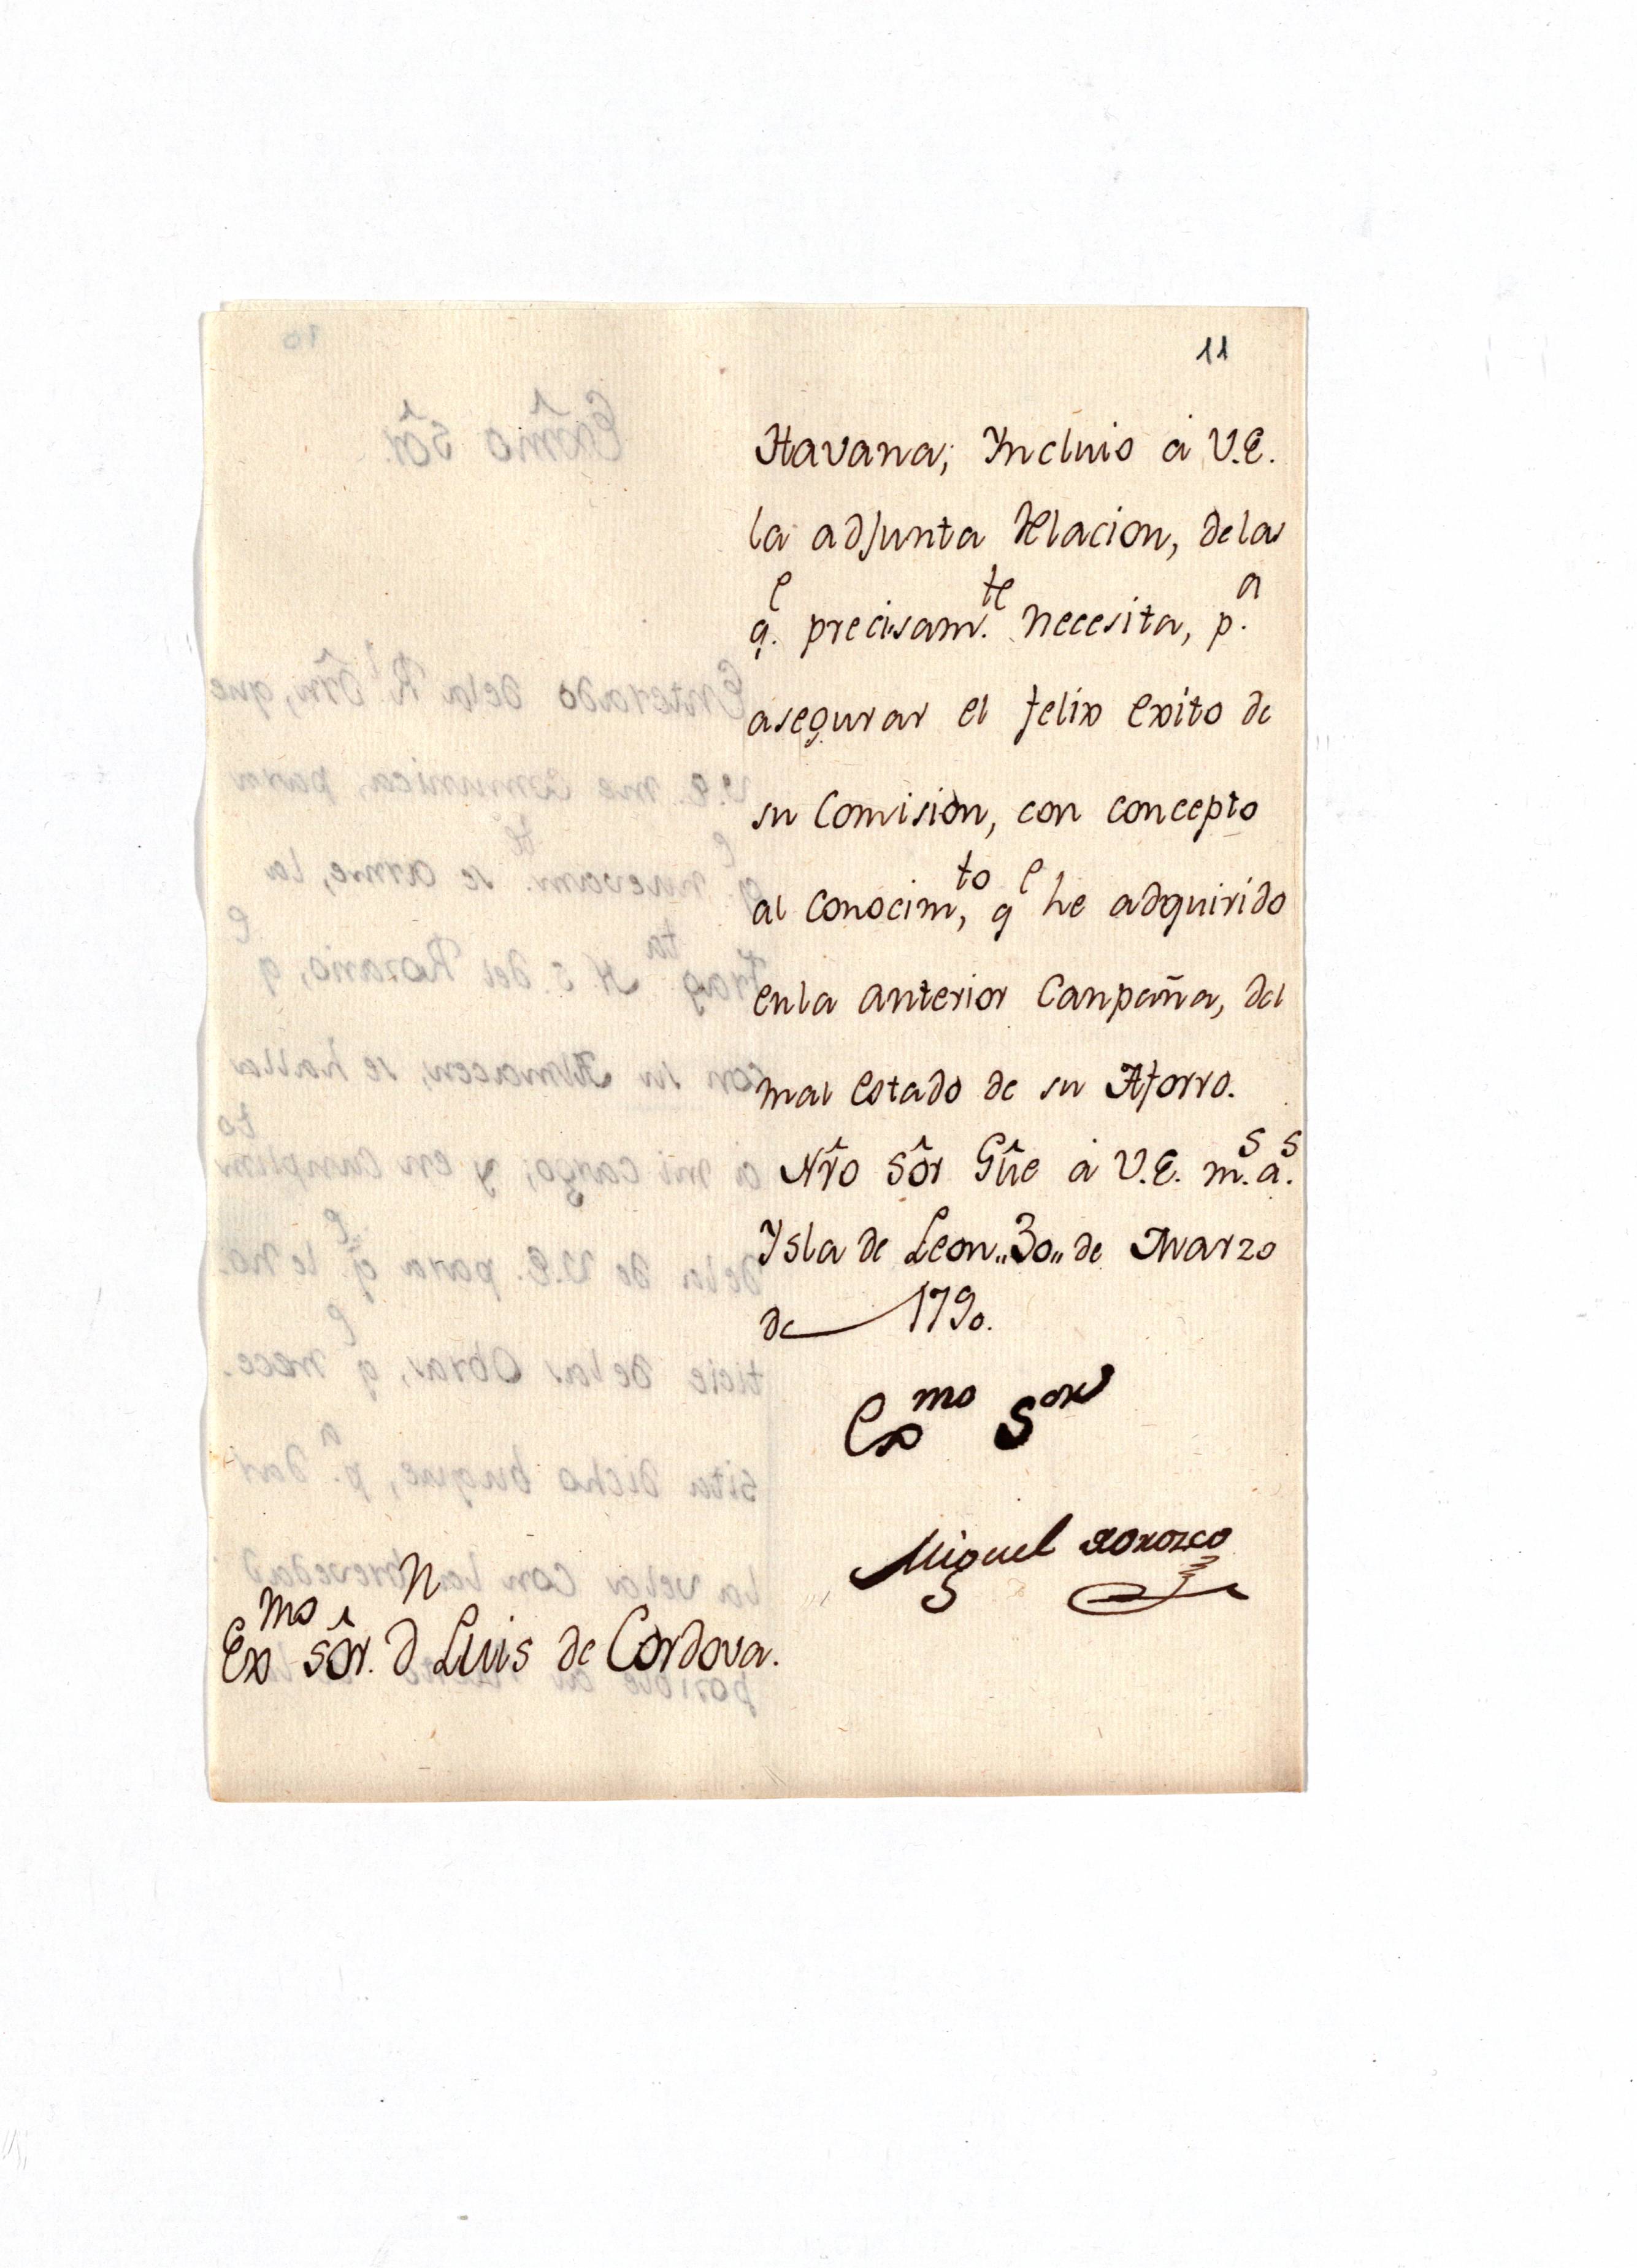 11
Havana; Yncluio à V.E.
la adjunta Relacion, delas
q.e precisam.te necesita, p.a
asegurar el felix exito de
su Comision, con concepto
al conocim,to q.e he adquirido
enla anterior Canpaña, del
mal estado de su Aforro.
Nr̂o Sôr Gûe à V.E. m.s a.s
Ysla de Leon,,30,, de Marzo
de 1790.
Exmo Sor
Miguel Orozco
Exmo Sôr. Dn Luis de Cordova.